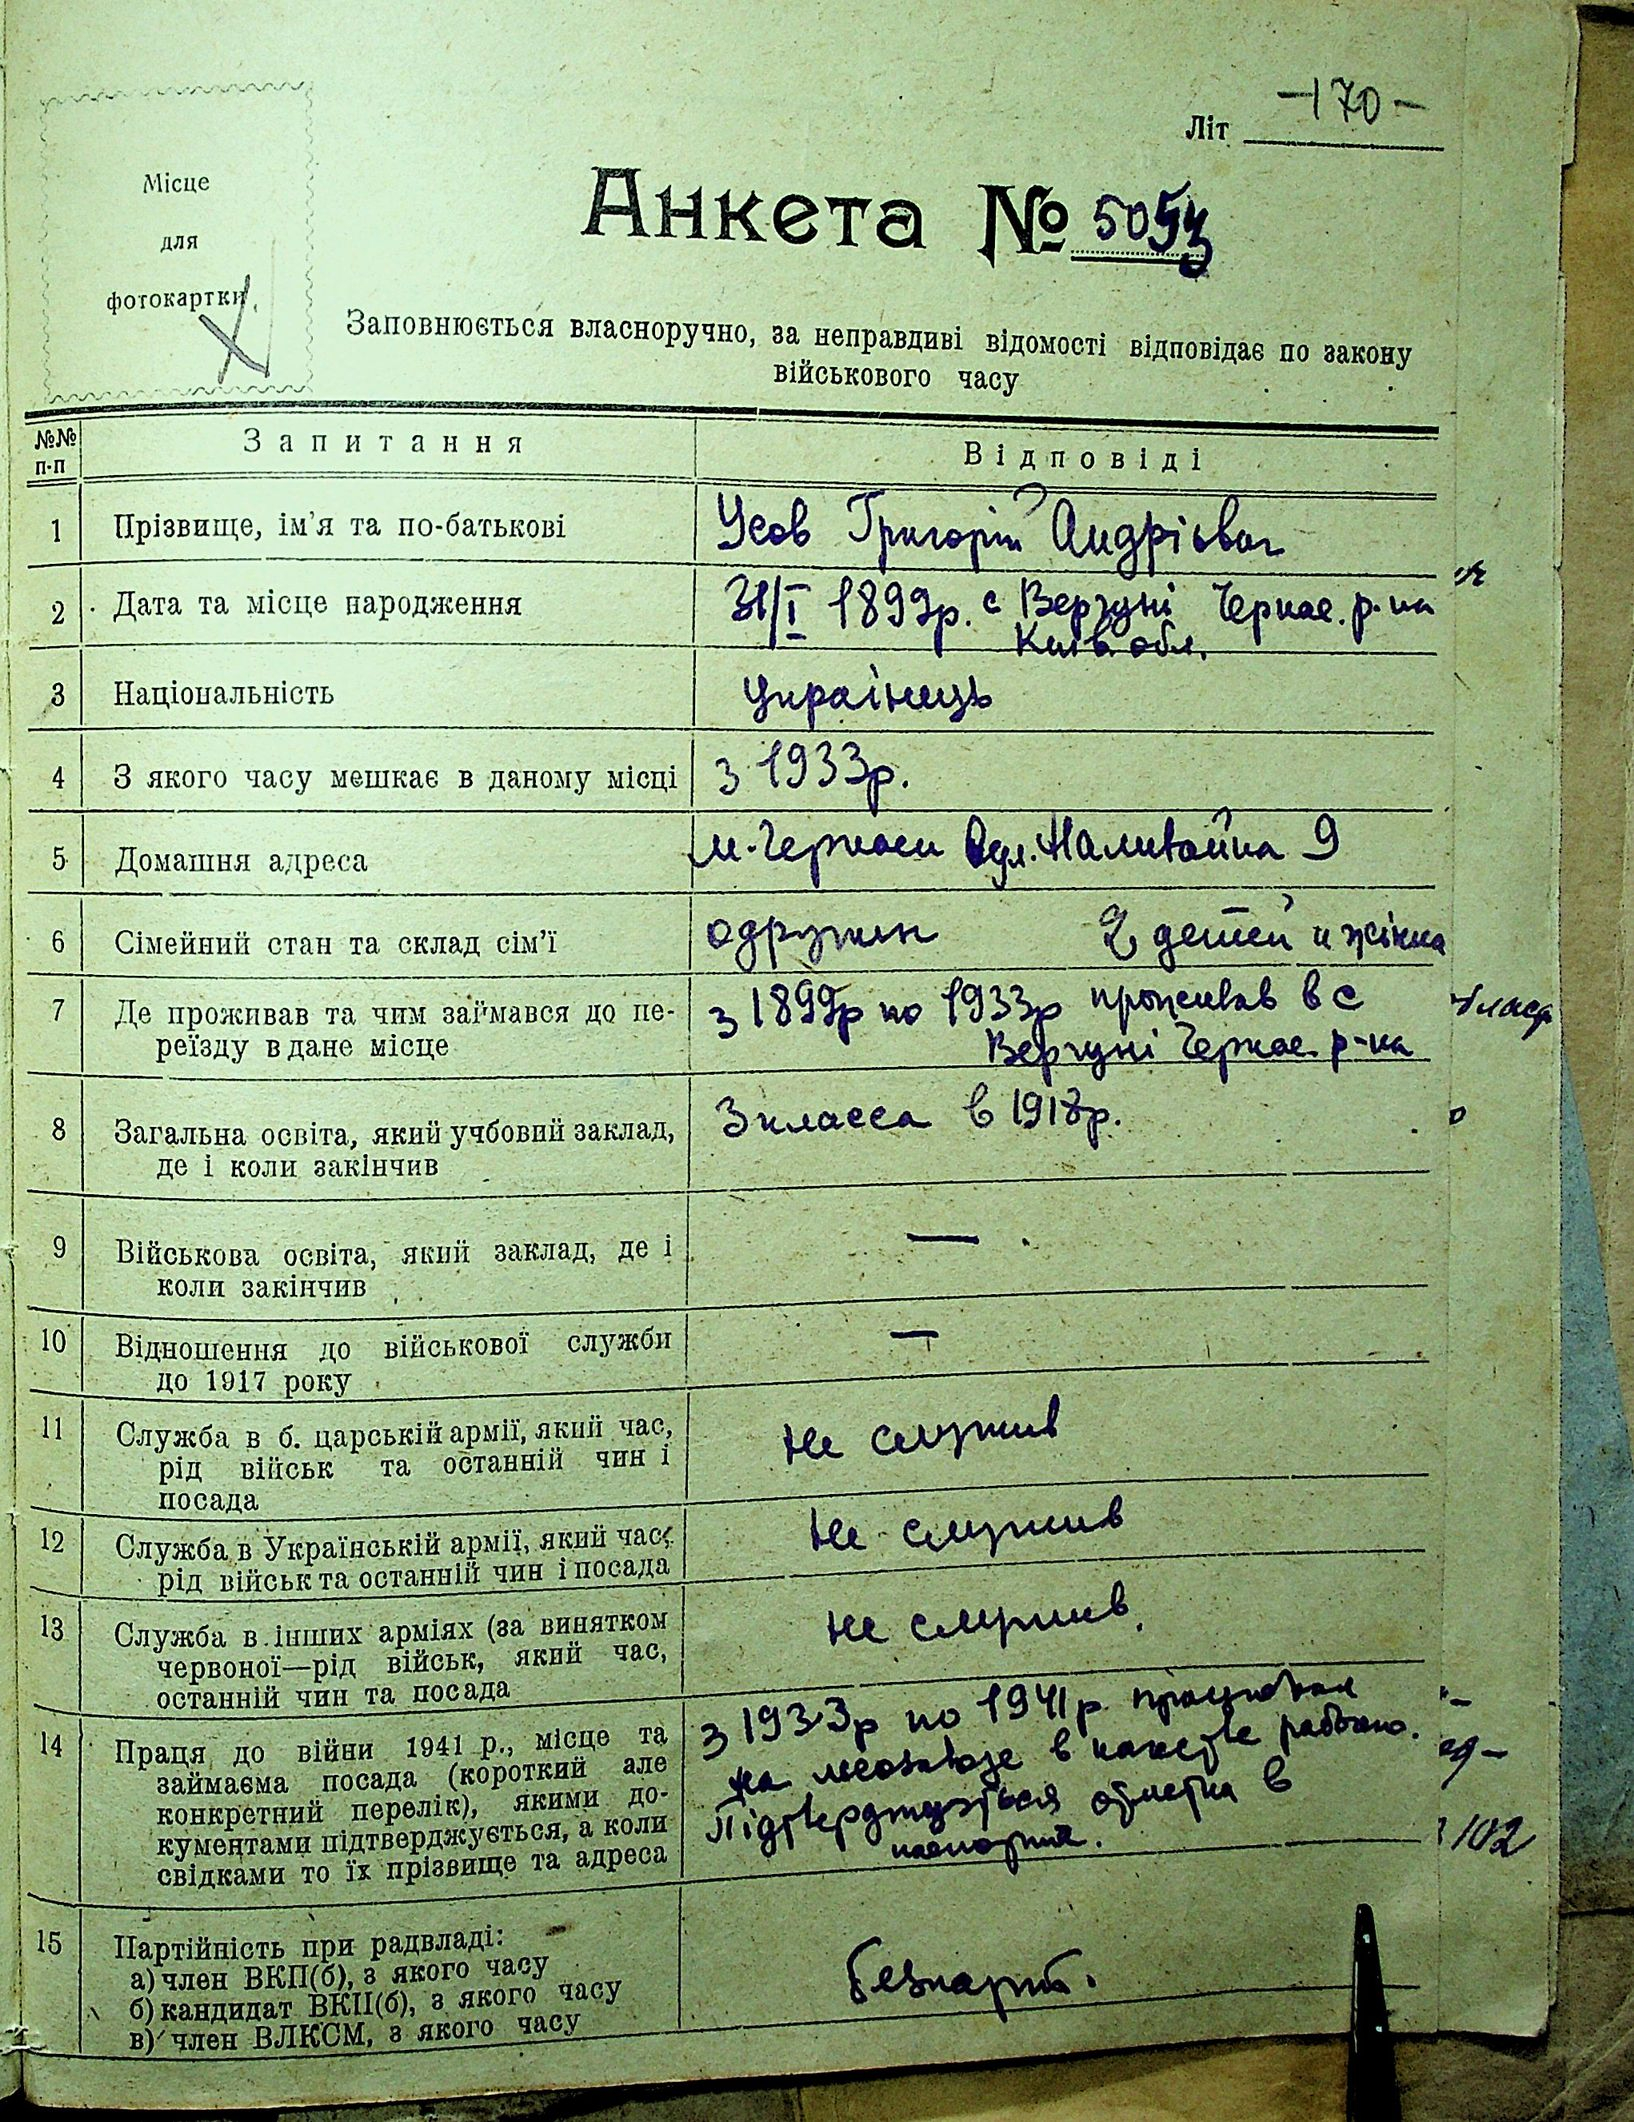 Місце
для
фотокартки
Літ -170-
Анкета № 5053
Заповнюється власноручно, за неправдиві відомості відповідає по закону
військового часу
№№ п-п Запитання Відповіді
1 Прізвище, ім'я та по-батькові Усов Григорій Андрієвич
2 Дата та місце народження 31/I 1899р. с Вергуні Черкас. р-на
Київ. обл.
3 Національність українець
4 З якого часу мешкає в даному місці з 1933р.
5 Домашня адреса м. Черкаси Вул. Наливайка 9
6 Сімейний стан та склад сім'ї одружен 2 детей и жінка
7 Де проживав та чим займався до пе- з 1899р по 1933р проживав в с
реїзду в дане місце Вергуні Черкас. р-на
8 Загальна освіта, який учбовий заклад, 3 класса в 1918р.
де і коли закінчив
9 Військова освіта, який заклад, де і —
коли закінчив
10 Відношення до військової служби —
до 1917 року
11 Служба в б. царській армії, який час, Не служив
рід військ та останній чин і
посада
12 Служба в Українській армії, який час, Не служив
рід військ та останній чин і посада
13 Служба в інших арміях (за винятком не служив
червоної—рід військ, який час,
останній чин та посада
14 Праця до війни 1941 р., місце та з 1933р по 1941р працювал
займаєма посада (короткий але на лесозаводе в качестве рабочо.
конкретний перелік), якими до- Підтверджується отметка в
кументами підтверджується, а коли паспорте.
свідками то їх прізвище та адреса
15 Партійність при радвладі: безпарт.
а) член ВКП(б), з якого часу
б) кандидат ВКП(б), з якого часу
в) член ВЛКСМ, з якого часу
102